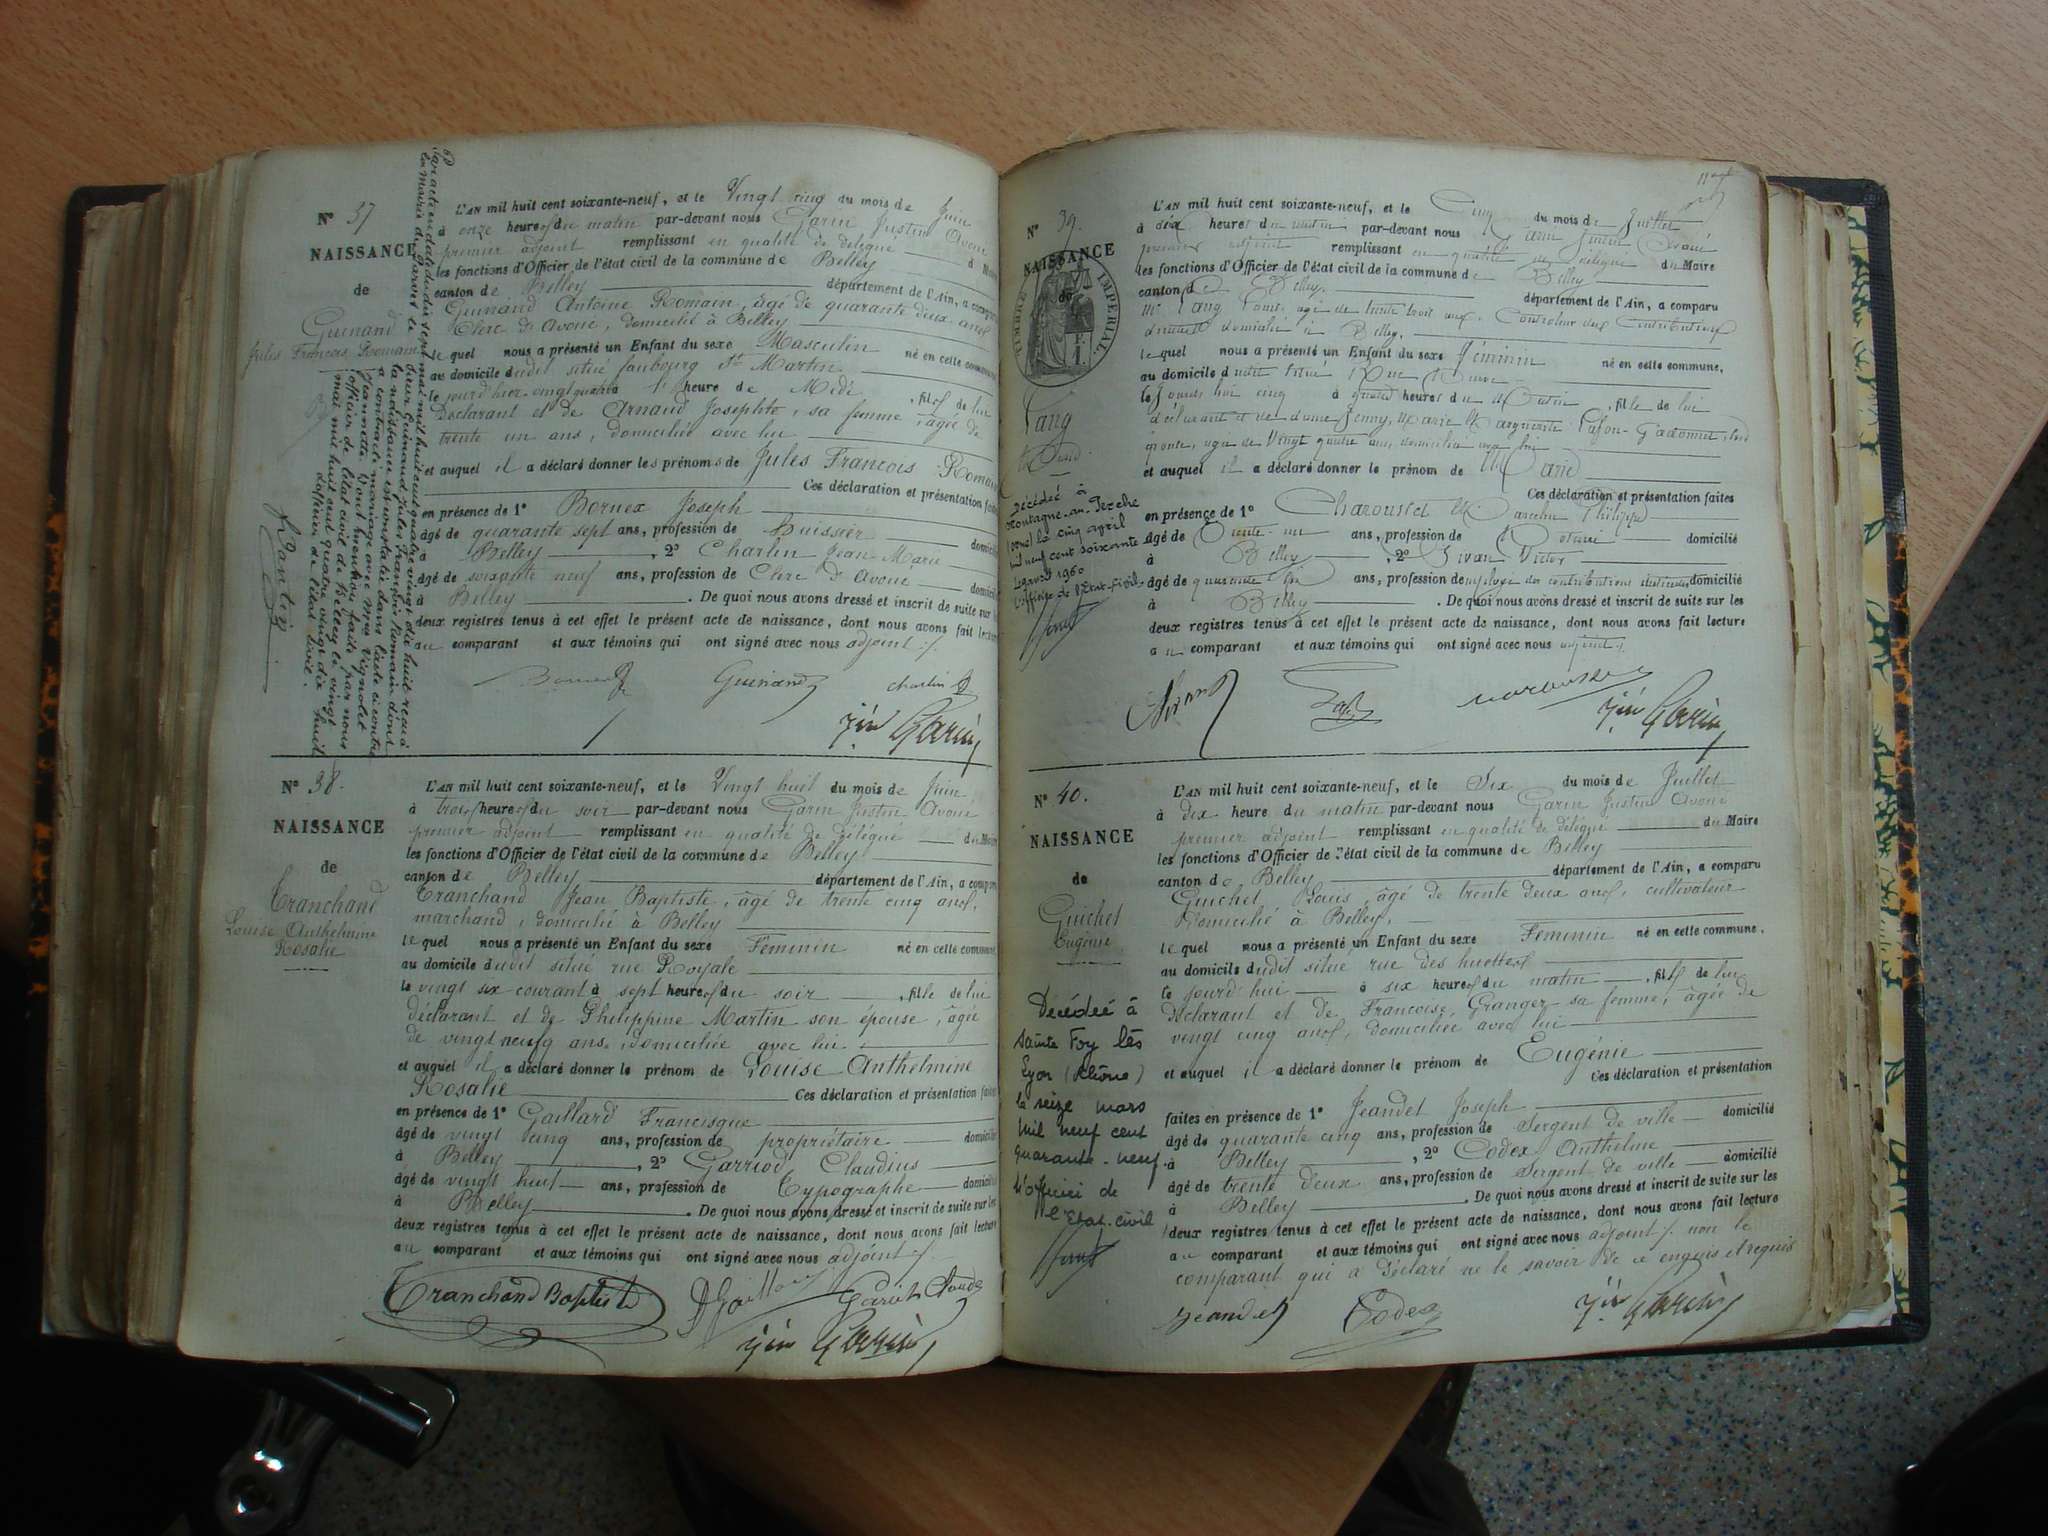 N° 37
NAISSANCE
de
Guinand
Jules François Romain
L'AN mil huit cent soixante-neuf, et le Vingt cinq du mois de Juin
à onze heures du matin par-devant nous Garin Justin Avoué
premier adjoint remplissant en qualité de délégué du Maire
les fonctions d'Officier de l'état civil de la commune de Belley
canton de Belley département de l'Ain, a comparu
Guinand Antoine Romain, âgé de quarante deux ans
Clerc d'Avoué, domicilié à Belley
le quel nous a présenté un Enfant du sexe Masculin né en cette commune
au domicile dudit situé faubourg St Martin
le jourd'hier vingt quatre à heure de Midi, fils de lui
Déclarant et de Arnaud Josephte, sa femme, âgée de
trente un ans, domiciliée avec lui
et auquel il a déclaré donner les prénoms de Jules François Romain
Ces déclaration et présentation faites
en présence de 1° Bornex Joseph
âgé de quarante sept ans, profession de huissier domicilié
à Belley, 2° Charlin Jean Marie
âgé de soixante neuf ans, profession de Clerc d'Avoué domicilié
à Belley. De quoi nous avons dressé et inscrit de suite sur les
deux registres tenus à cet effet le présent acte de naissance, dont nous avons fait lecture
au comparant et aux témoins qui ont signé avec nous adjoint ./.
Guinand Charlin
Jin Garin
Par acte en date du dix sept mai mil huit cent quatre vingt dix huit reçu à
la mairie de le
sieur Guinand Jules François Romain dont
la naissance est constatée dans l'acte ci contre
a contracté mariage avec Mlle Vignolet
Jeannette. Dont mention faite par nous
officier de l'état civil de Belley le vingt
mai mil huit cent quatre vingt dix huit
L'officier de l'état civil.
N° 38.
NAISSANCE
de
Tranchand
Louise Anthelmine
Rosalie
L'AN mil huit cent soixante-neuf, et le Vingt huit du mois de Juin
à trois heures du soir par-devant nous Garin Justin Avoué
premier adjoint remplissant en qualité de délégué du Maire
les fonctions d'Officier de l'état civil de la commune de Belley
canton de Belley département de l'Ain, a comparu
Tranchand Jean Baptiste, âgé de trente cinq ans,
marchand, domicilié à Belley
le quel nous a présenté un Enfant du sexe Féminin né en cette commune
au domicile dudit situé rue Royale
le vingt six courant à sept heures du soir, fille de lui
déclarant et de Philippine Martin son épouse, âgée
de vingt neuf ans, domiciliée avec lui.
et auquel il a déclaré donner le prénom de Louise Anthelmine
Rosalie Ces déclaration et présentation faites
en présence de 1° Gaillard Francisque
âgé de vingt cinq ans, profession de propriétaire domicilié
à Belley, 2° Garriod Claudius
âgé de vingt huit ans, profession de Typographe domicilié
à Belley. De quoi nous avons dressé et inscrit de suite sur les
deux registres tenus à cet effet le présent acte de naissance, dont nous avons fait lecture
au comparant et aux témoins qui ont signé avec nous adjoint ./.
Tranchand Baptiste
Jin Garin
N° 39.
NAISSANCE
de
TIMBRE IMPERIAL
Lang
Marie
L'AN mil huit cent soixante-neuf, et le Cinq du mois de Juillet
à dix heures du matin par-devant nous Garin Justin Avoué
premier adjoint remplissant en qualité de délégué du Maire
les fonctions d'Officier de l'état civil de la commune de Belley
canton de Belley département de l'Ain, a comparu
Mr Lang Louis âgé de trente trois ans, Controleur des Contributions
directes domicilié à Belley.
le quel nous a présenté un Enfant du sexe féminin né en cette commune.
au domicile dudit situé Rue
le jourd'hui cinq à quatre heures du Matin, fille de lui
déclarant et de dame Jenny, Marie Marguerite Lafon-Gadonnet, son
épouse, âgée de Vingt quatre ans, domiciliée avec lui
et auquel il a déclaré donner le prénom de Marie
Ces déclaration et présentation faites
en présence de 1° Charousset Marcelin Philippe
âgé de trente-un ans, profession de Notaire domicilié
à Belley, 2° Sivan Victor
âgé de quarante ans, profession de employé des contributions indirectes domicilié
à Belley. De quoi nous avons dressé et inscrit de suite sur les
deux registres tenus à cet effet le présent acte de naissance, dont nous avons fait lecture
au comparant et aux témoins qui ont signé avec nous adjoint ./.
Jin Garin
Décédée à
Mortagne-au-Perche
(Orne) le cinq avril
mil neuf cent soixante
avril 1960
L'officier de l'Etat-civil.
N° 40.
NAISSANCE
de
Guichet
Eugénie
L'AN mil huit cent soixante-neuf, et le Six du mois de Juillet
à dix heure du matin par-devant nous Garin Justin Avoué
premier adjoint remplissant en qualité de délégué du Maire
les fonctions d'Officier de l'état civil de la commune de Belley
canton de Belley département de l'Ain, a comparu
Guichet Louis, âgé de trente deux ans, cultivateur
domicilié à Belley,
le quel nous a présenté un Enfant du sexe Féminin né en cette commune.
au domicile dudit situé rue des huettes
le jourd'hui à six heures du matin, fille de lui
déclarant et de Françoise Granger sa femme, âgée de
vingt cinq ans, domiciliée avec lui
et auquel il a déclaré donner le prénom de Eugénie
Ces déclaration et présentation
faites en présence de 1° Jeandet Joseph
âgé de quarante cinq ans, profession de Sergent de ville domicilié
à Belley, 2° Codex Anthelme
âgé de trente deux ans, profession de Sergent de ville domicilié
à Belley. De quoi nous avons dressé et inscrit de suite sur les
deux registres tenus à cet effet le présent acte de naissance, dont nous avons fait lecture
au comparant et aux témoins qui ont signé avec nous adjoint ./. non le
comparant qui a déclaré ne le savoir de ce enquis et requis
Jeandet Codex
Jin Garin
Décédée à
Sainte Foy lès
Lyon (Rhône)
le seize mars
mil neuf cent
quarante-neuf.
L'officier de
l'Etat-civil